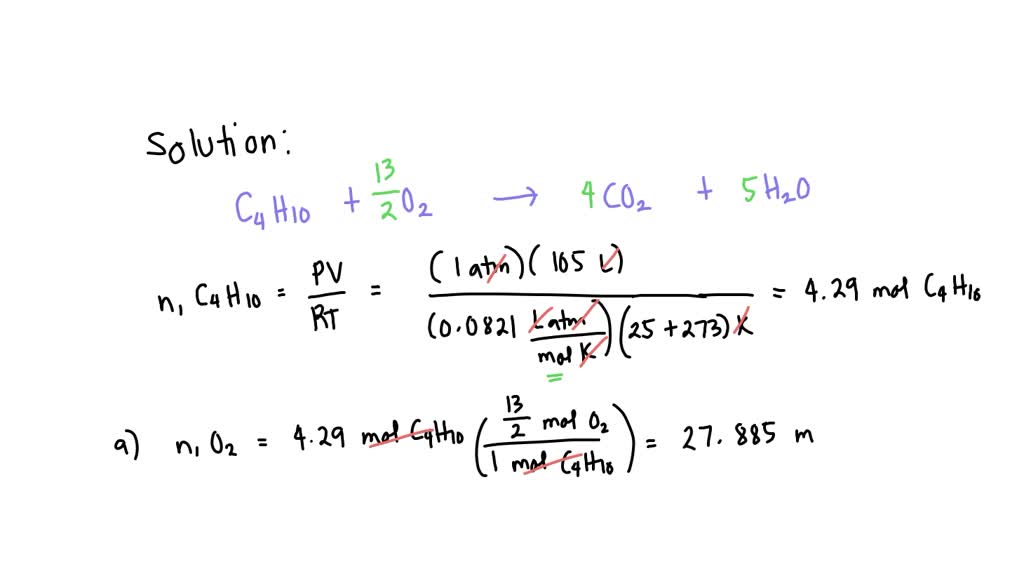 Solution:
C₄H₁₀ + 13/2 O₂ → 4CO₂ + 5H₂O
n, C₄H₁₀ = PV/RT = (1 atm)(105 L) / (0.0821 L atm/mol K)(25 + 273)K = 4.29 mol C₄H₁₀
a) n, O₂ = 4.29 mol C₄H₁₀ (13/2 mol O₂ / 1 mol C₄H₁₀) = 27.885 m